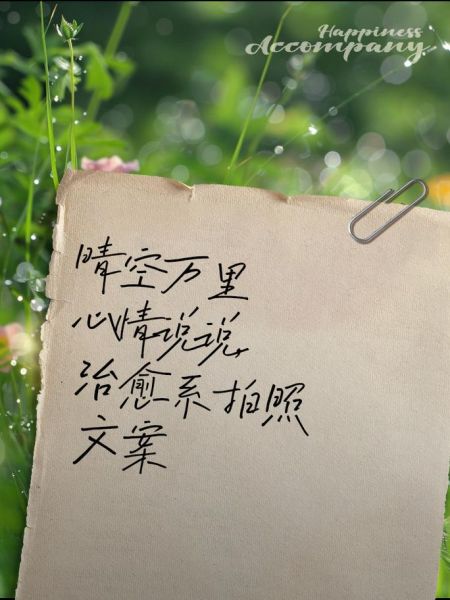 Happiness
Accompany
晴空万里
心情说说,
治愈系拍照
文案